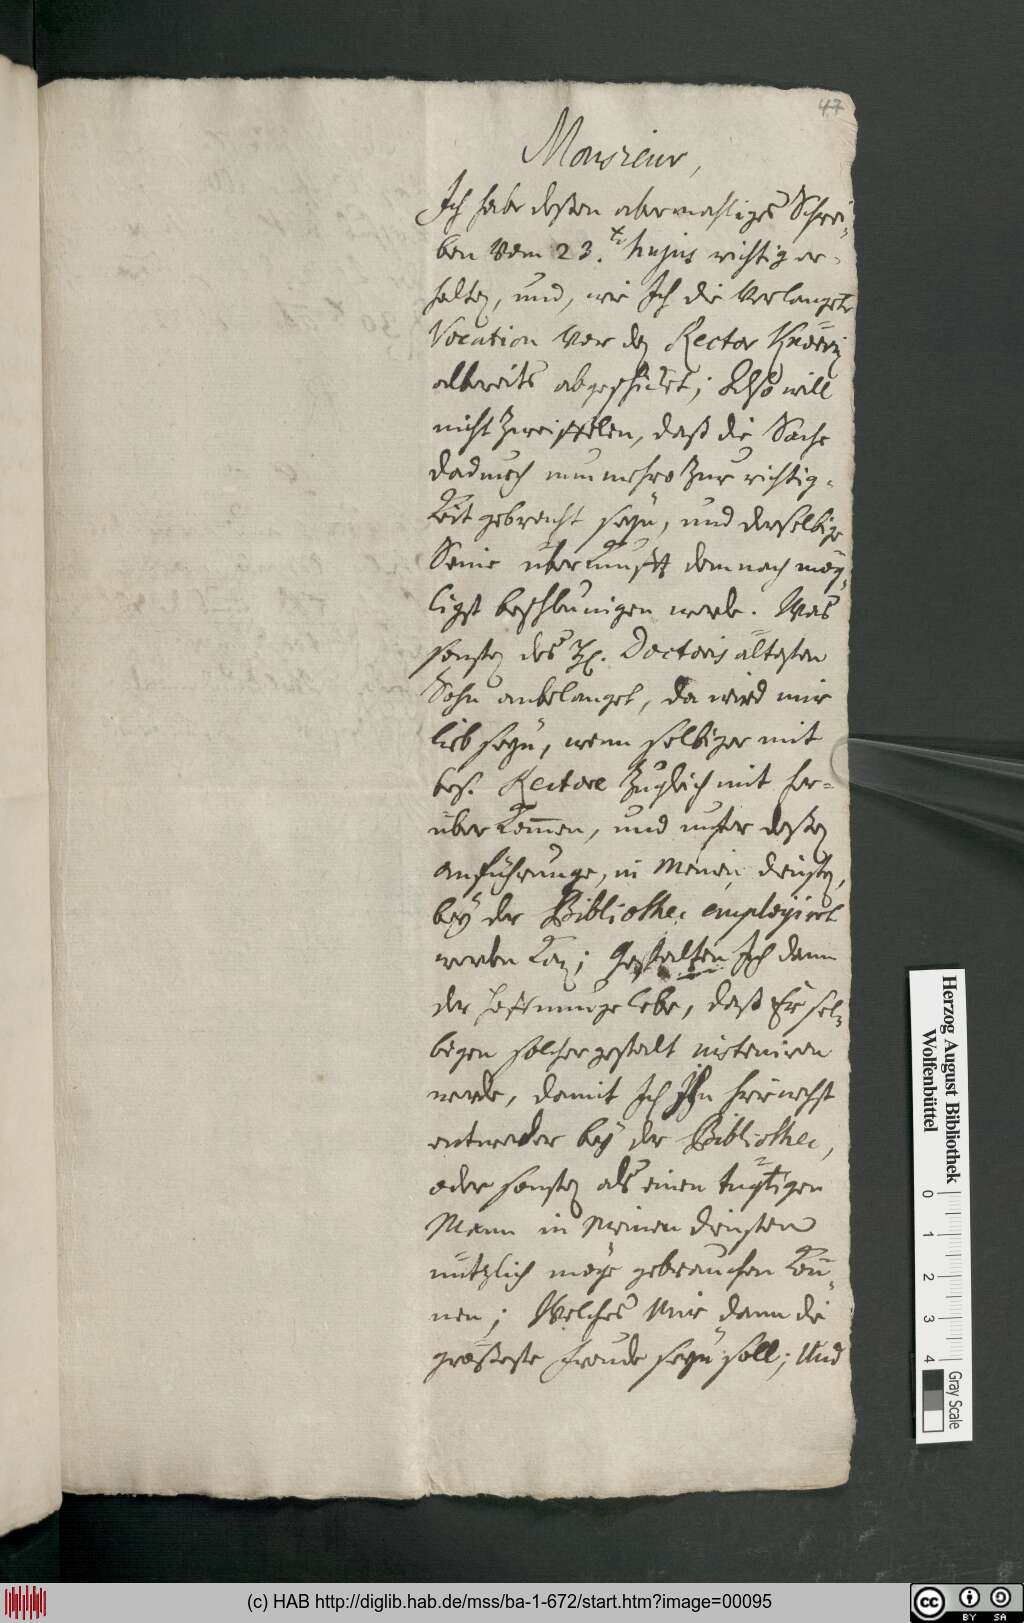 47
Monsieur,
Ich habe deßen abermahliges Schrei-
ben vom 23.ten hujus richtig er-
halten, und, wie Ich die verlangete
Vocation vor den Rector
albereits abgeschicket; Also will
nicht Zweiffelen, daß die Sache
dadurch nunmehro Zur richtig-
keit gebracht seyn, und derselbige
Seine überkunfft demnach mög-
ligst beschleunigen werde. Was
sonsten des H. Doctoris ältesten
Sohn anbelanget, da wird mir
lieb seyn, wenn selbiger mit
bes. Rectore Zugleich mit her-
über kommen, und unter deßen
anführunge, in Meinen diensten,
bey der Bibliothec employiret
werden kan; Gestalten Ich dann
der hoffnunge lebe, daß Er sel-
bigen solchergestalt instruiren
werde, damit Ich Ihn hiernechst
entweder bey der Bibliothec,
oder sonsten als einen tüchtigen
Mann in Meinen diensten
nützlich möge gebrauchen kön-
nen; Welches Mir dann die
größeste freude seyn soll; Und
Herzog August Bibliothek
Wolfenbüttel
0 1 2 3 4
Gray Scale
(c) HAB http://diglib.hab.de/mss/ba-1-672/start.htm?image=00095
cc BY SA